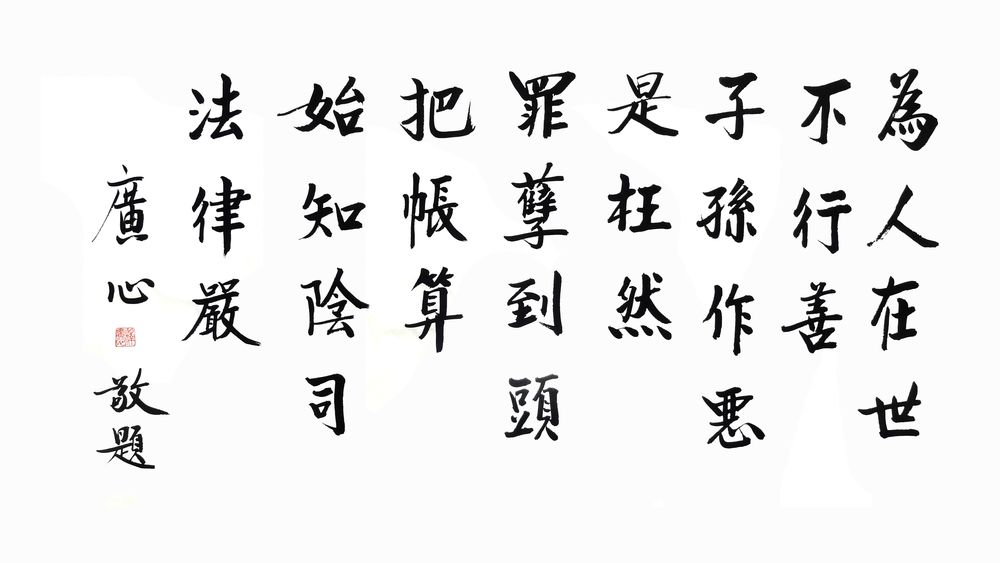 為人在世
不行善
子孫作悪
是枉然
罪孽到頭
把帳算
始知陰司
法律嚴
廣心
敬題